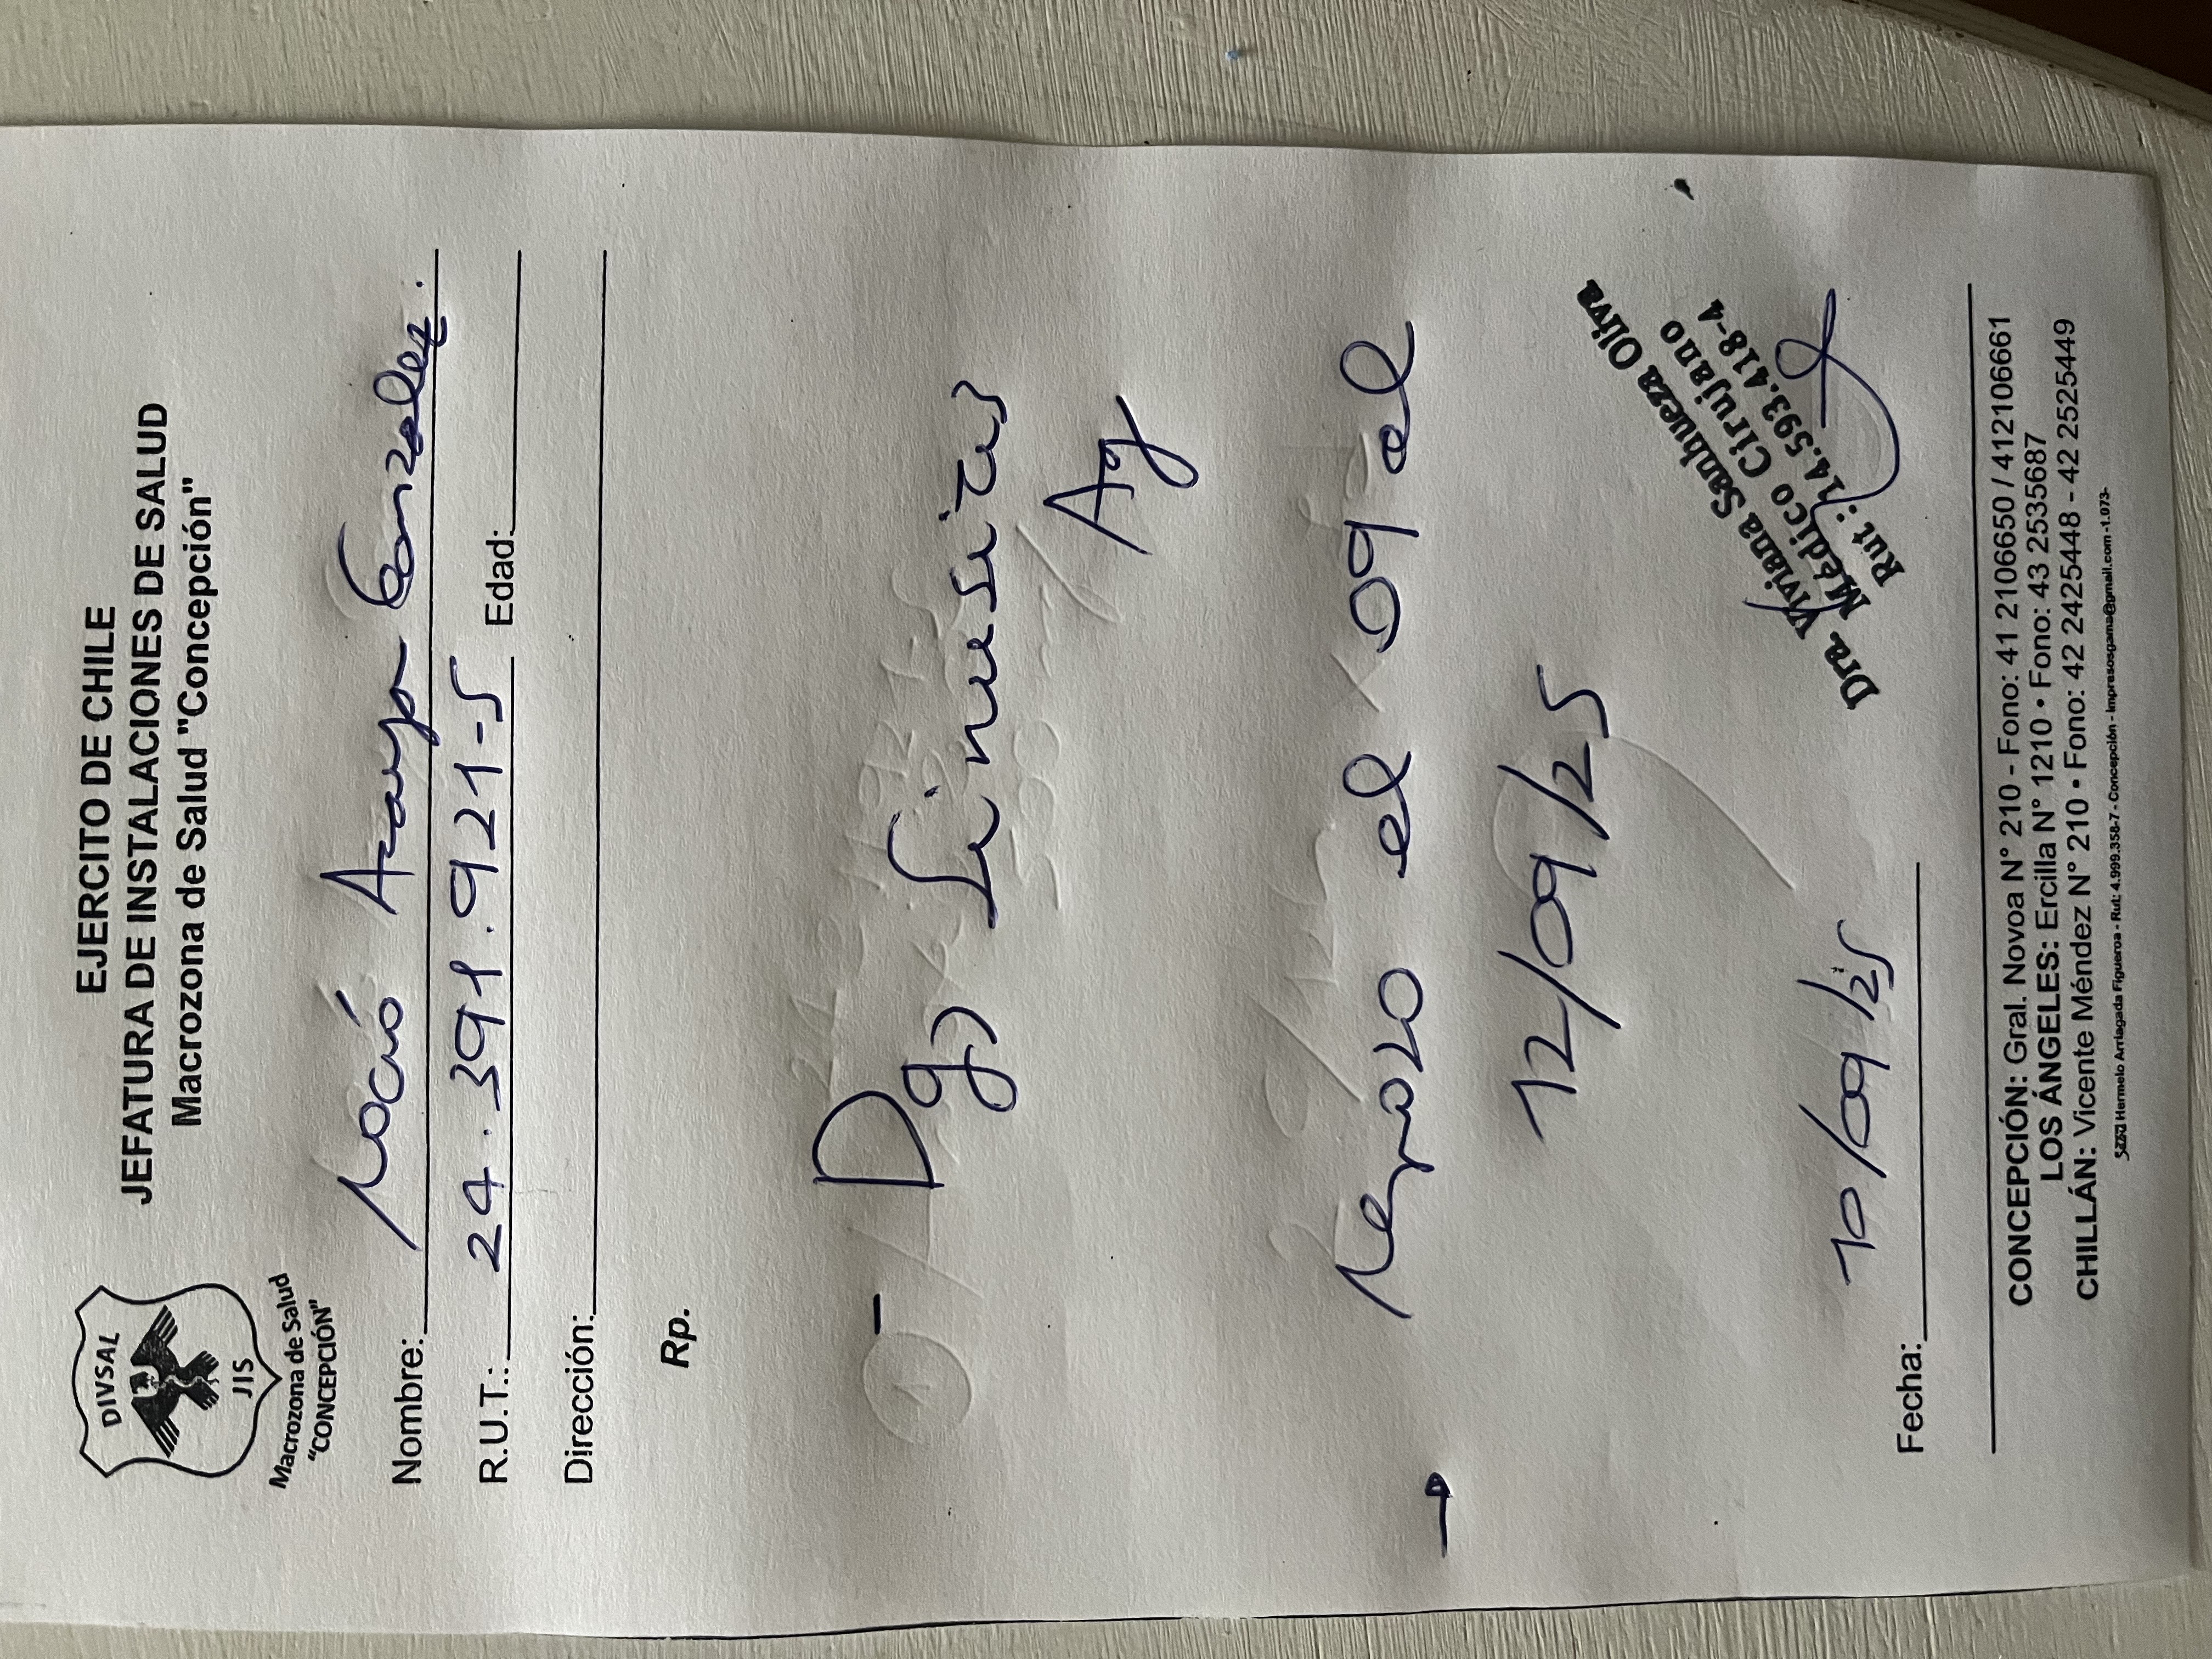 DIVSAL
JIS
Macrozona de Salud
"CONCEPCIÓN"
EJERCITO DE CHILE
JEFATURA DE INSTALACIONES DE SALUD
Macrozona de Salud "Concepción"
Nombre: Rocío Araya Gonzalez.
R.U.T.: 24.391.921-5 Edad:
Dirección:
Rp.
- Dg) Sinusitis
Ag
→ Reposo el 09 al
12/09/25
Dra. Viviana Sanhueza Oliva
Médico Cirujano
Rut: 14.593.418-4
Fecha: 10/09/25
CONCEPCIÓN: Gral. Novoa N° 210 - Fono: 41 2106650 / 412106661
LOS ÁNGELES: Ercilla N° 1210 • Fono: 43 2535687
CHILLÁN: Vicente Méndez N° 210 • Fono: 42 2425448 - 42 2525449
Hermelo Arriagada Figueroa - Rut: 4.999.358-7 - Concepción - impresosgama@gmail.com -1.073-